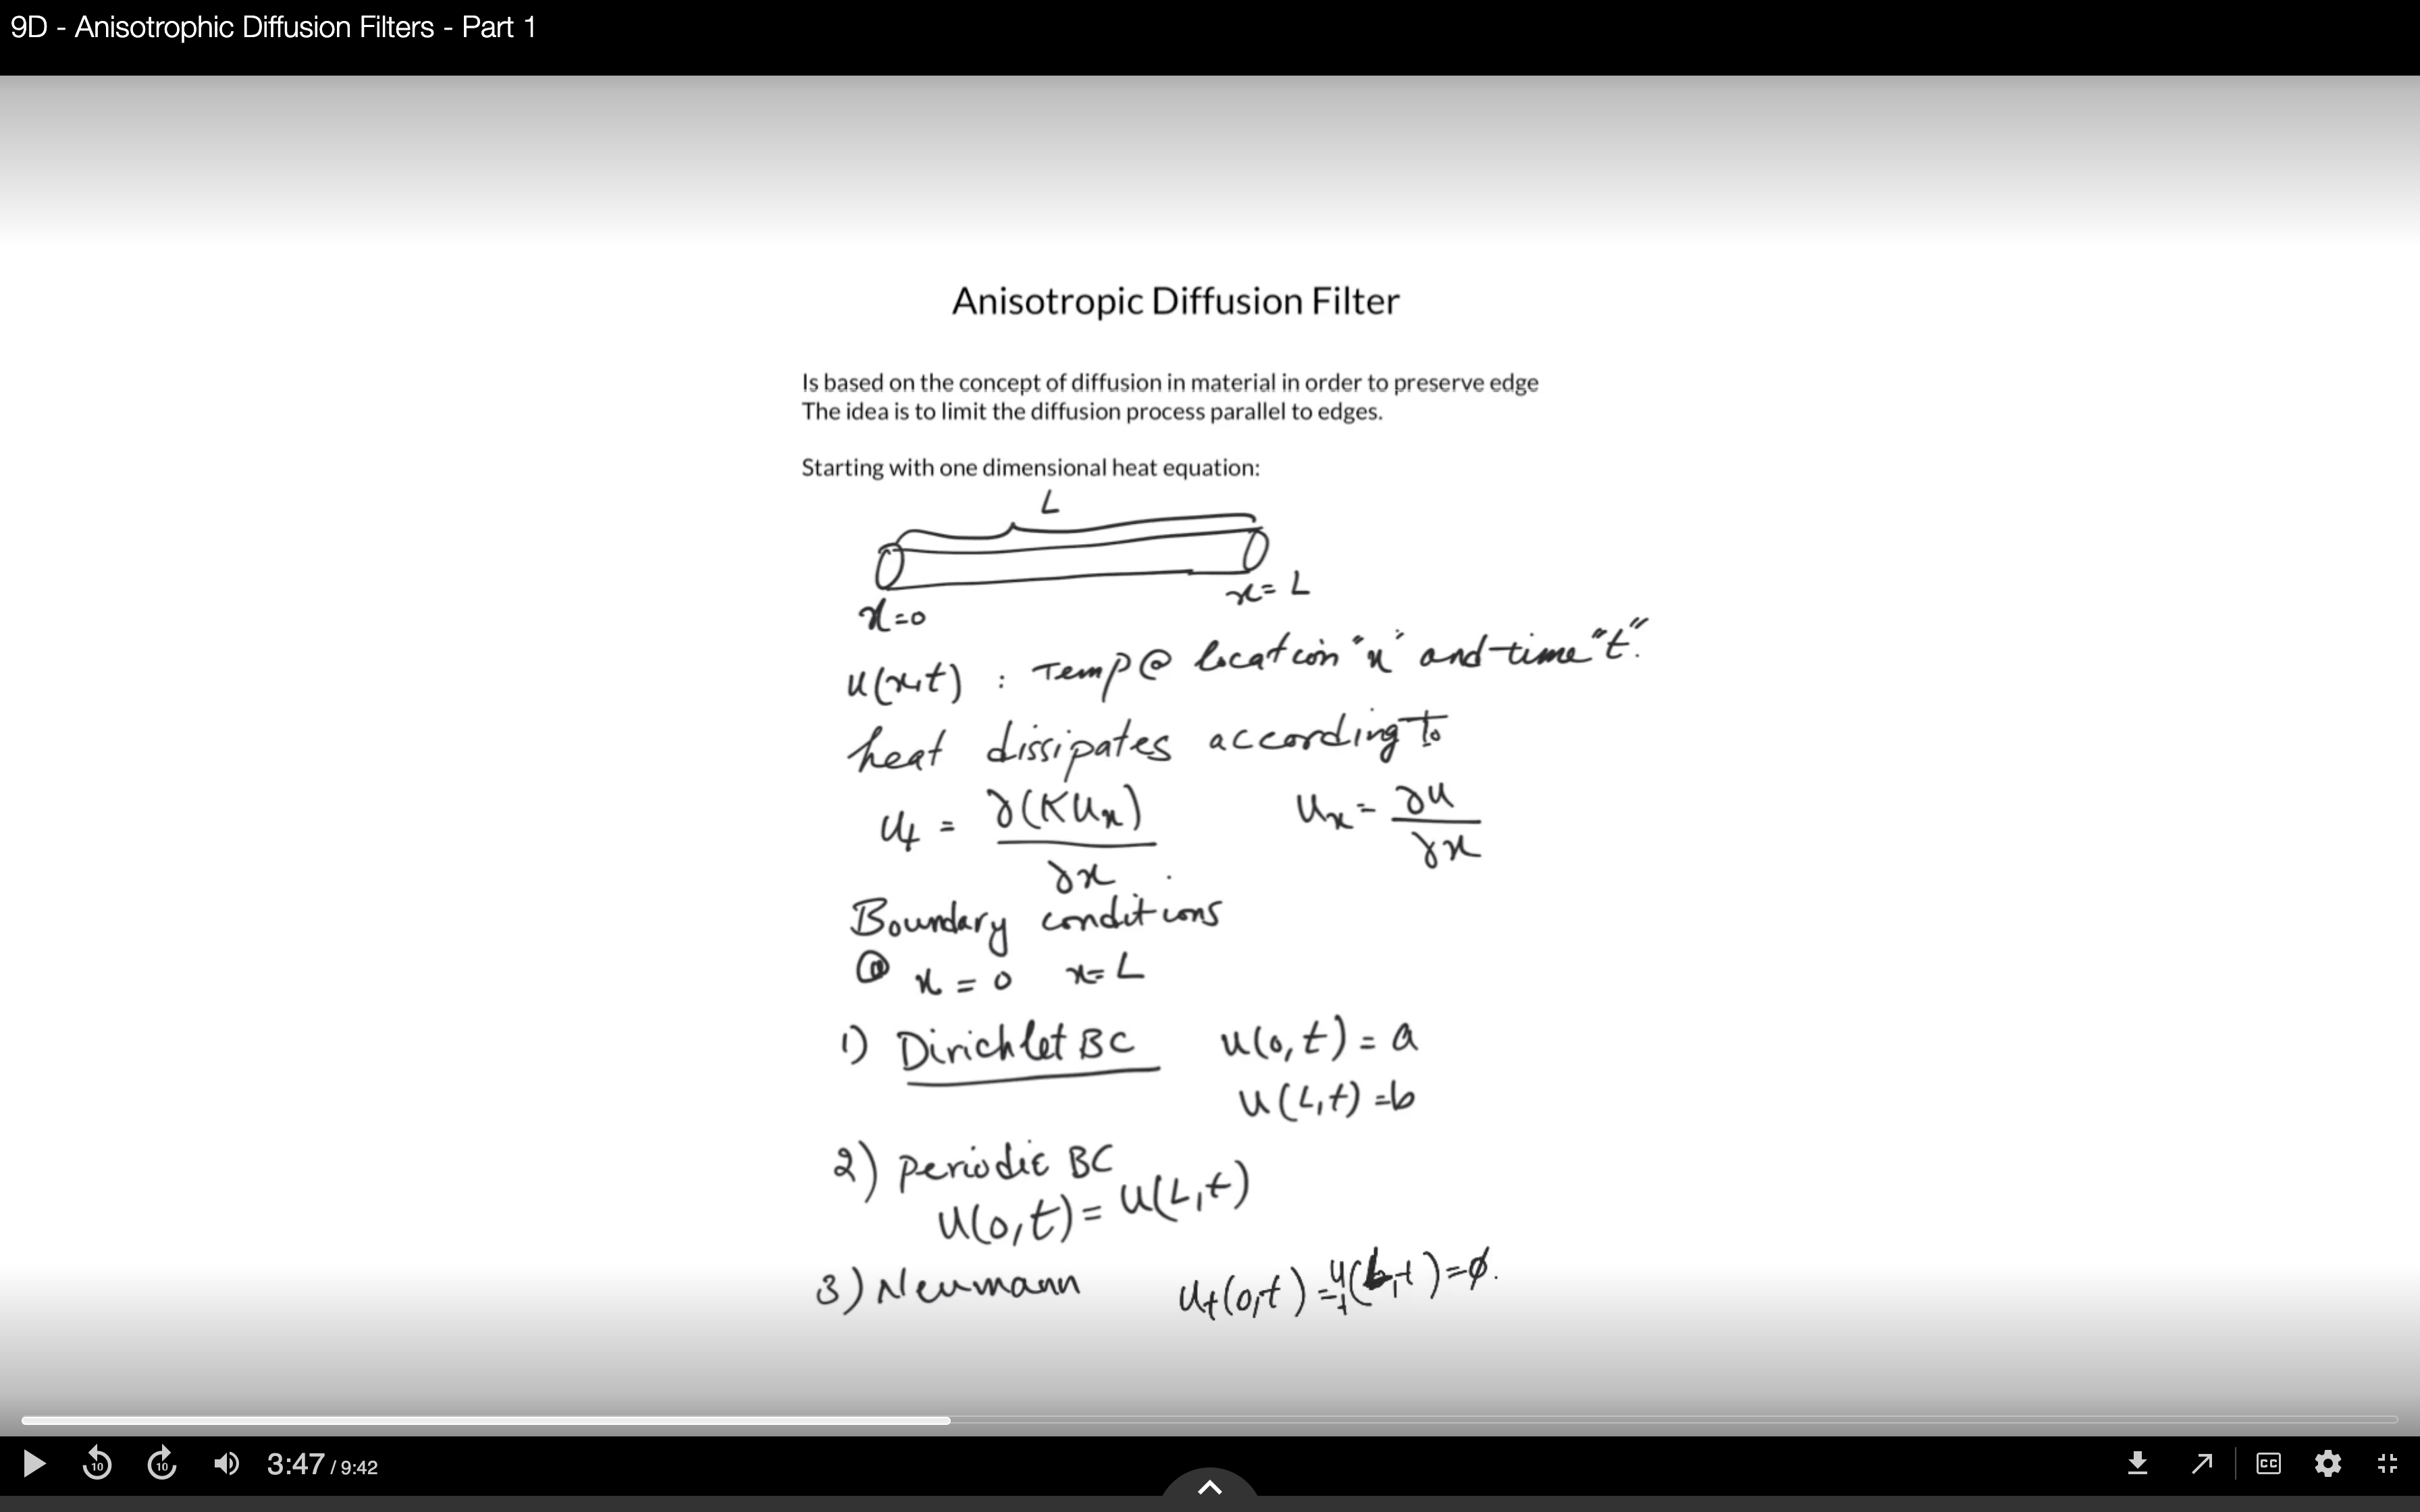 9D - Anisotrophic Diffusion Filters - Part 1
Anisotropic Diffusion Filter
Is based on the concept of diffusion in material in order to preserve edge
The idea is to limit the diffusion process parallel to edges.
Starting with one dimensional heat equation:
L
x=0
x=L
u(x,t) : Temp @ location "x" and time "t".
heat dissipates according to
u_t = ∂(K u_x) / ∂x    u_x = ∂u / ∂x
Boundary conditions
@ x = 0    x = L
1) Dirichlet BC    u(0,t) = a
u(L,t) = b
2) periodic BC
u(0,t) = u(L,t)
3) Neumann    u_t(0,t) = u_t(L,t) = ϕ.
10
10
3:47 / 9:42
CC